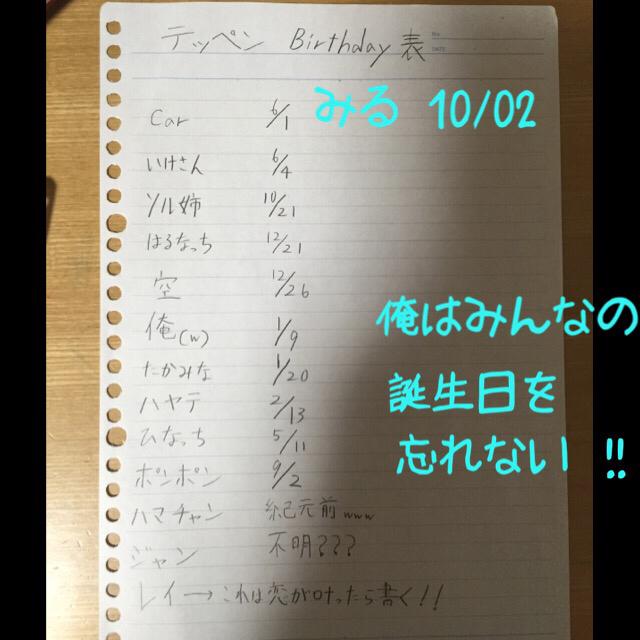 テッペン Birthday表
No.
DATE
Car 6/1
みる 10/02
いけさん 6/4
ソル姉 10/21
はるなっち 12/21
空 12/26
俺(w) 1/9
たかみな 1/20
ハヤテ 2/13
ひなっち 5/11
ポンポン 9/2
ハマチャン 紀元前www
ジャン 不明???
レイ→これは恋が叶ったら書く!!
俺はみんなの
誕生日を
忘れない !!